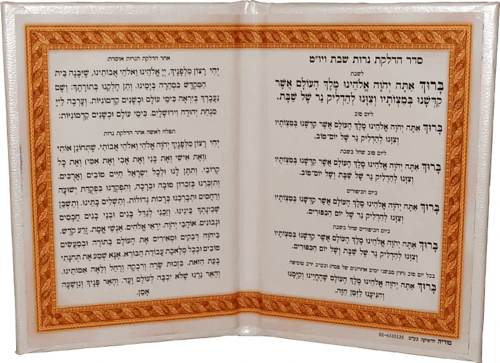 סדר הדלקת נרות שבת ויו״ט
לשבת
בָּרוּךְ אַתָּה יְהֹוָה אֱלֹהֵינוּ מֶלֶךְ הָעוֹלָם אֲשֶׁר
קִדְּשָׁנוּ בְּמִצְוֹתָיו וְצִוָּנוּ לְהַדְלִיק נֵר שֶׁל שַׁבָּת.
ליום טוב
בָּרוּךְ אַתָּה יְהֹוָה אֱלֹהֵינוּ מֶלֶךְ הָעוֹלָם אֲשֶׁר קִדְּשָׁנוּ בְּמִצְוֹתָיו
וְצִוָּנוּ לְהַדְלִיק נֵר שֶׁל יוֹם־טוֹב.
ליום טוב שחל בשבת
בָּרוּךְ אַתָּה יְהֹוָה אֱלֹהֵינוּ מֶלֶךְ הָעוֹלָם אֲשֶׁר קִדְּשָׁנוּ בְּמִצְוֹתָיו
וְצִוָּנוּ לְהַדְלִיק נֵר שֶׁל שַׁבָּת וְשֶׁל יוֹם־טוֹב.
ביום הכיפורים
בָּרוּךְ אַתָּה יְהֹוָה אֱלֹהֵינוּ מֶלֶךְ הָעוֹלָם אֲשֶׁר קִדְּשָׁנוּ בְּמִצְוֹתָיו
וְצִוָּנוּ לְהַדְלִיק נֵר שֶׁל יוֹם הַכִּפּוּרִים.
ביום הכיפורים שחל בשבת
בָּרוּךְ אַתָּה יְהֹוָה אֱלֹהֵינוּ מֶלֶךְ הָעוֹלָם אֲשֶׁר קִדְּשָׁנוּ בְּמִצְוֹתָיו
וְצִוָּנוּ לְהַדְלִיק נֵר שֶׁל שַׁבָּת וְשֶׁל יוֹם הַכִּפּוּרִים.
בכל יום טוב וחוץ מבשני ימים אחרונים של פסח
בָּרוּךְ אַתָּה יְהֹוָה אֱלֹהֵינוּ מֶלֶךְ הָעוֹלָם שֶׁהֶחֱיָנוּ וְקִיְּמָנוּ
וְהִגִּיעָנוּ לַזְּמַן הַזֶּה.
בע״מ 02-6233133
אחר הדלקת הנרות אומרת:
יְהִי רָצוֹן מִלְּפָנֶיךָ, יְיָ אֱלֹהֵינוּ וֵאלֹהֵי אֲבוֹתֵינוּ, שֶׁיִּבָּנֶה בֵּית
הַמִּקְדָּשׁ בִּמְהֵרָה בְיָמֵינוּ. וְתֵן חֶלְקֵנוּ בְּתוֹרָתֶךָ: וְשָׁם
נַעֲבָדְךָ בְּיִרְאָה כִּימֵי עוֹלָם וּכְשָׁנִים קַדְמוֹנִיּוֹת. וְעָרְבָה לַייָ
מִנְחַת יְהוּדָה וִירוּשָׁלָיִם. כִּימֵי עוֹלָם וּכְשָׁנִים קַדְמוֹנִיּוֹת.
תפלה לאשה אחר הדלקת נרות
יְהִי רָצוֹן מִלְּפָנֶיךָ יְהֹוָה אֱלֹהַי וֵאלֹהֵי אֲבוֹתַי. שֶׁתְּחוֹנֵן אוֹתִי
וְאֶת אִישִׁי וְאֶת בָּנַי וְאֶת אָבִי וְאֶת אִמִּי וְאֶת כָּל
קְרוֹבַי. וְתִתֶּן לָנוּ וּלְכָל יִשְׂרָאֵל חַיִּים טוֹבִים וַאֲרֻכִּים.
וְתִזְכְּרֵנוּ בְּזִכְרוֹן טוֹבָה וּבְרָכָה. וְתִפְקְדֵנוּ בִּפְקֻדַּת יְשׁוּעָה
וְרַחֲמִים וּתְבָרְכֵנוּ בְּרָכוֹת גְּדוֹלוֹת. וְתַשְׁלִים בָּתֵּינוּ. וְתַשְׁכֵּן
שְׁכִינָתְךָ בֵּינֵינוּ. וְזַכֵּנִי לְגַדֵּל בָּנִים וּבְנֵי בָנִים חֲכָמִים
וּנְבוֹנִים. אוֹהֲבֵי יְהֹוָה. יִרְאֵי אֱלֹהִים. אַנְשֵׁי אֱמֶת. זֶרַע קֹדֶשׁ.
בַּיהֹוָה דְּבֵקִים וּמְאִירִים אֶת הָעוֹלָם בַּתּוֹרָה וּבְמַעֲשִׂים
טוֹבִים וּבְכָל מְלֶאכֶת עֲבוֹדַת הַבּוֹרֵא. אָנָּא שְׁמַע אֶת תְּחִנָּתִי
בָּעֵת הַזֹּאת. בִּזְכוּת שָׂרָה וְרִבְקָה וְרָחֵל וְלֵאָה אִמּוֹתֵינוּ.
וְהָאֵר נֵרֵנוּ שֶׁלֹּא יִכְבֶּה לְעוֹלָם וָעֶד. וְהָאֵר פָּנֶיךָ וְנִוָּשֵׁעָה
אָמֵן.